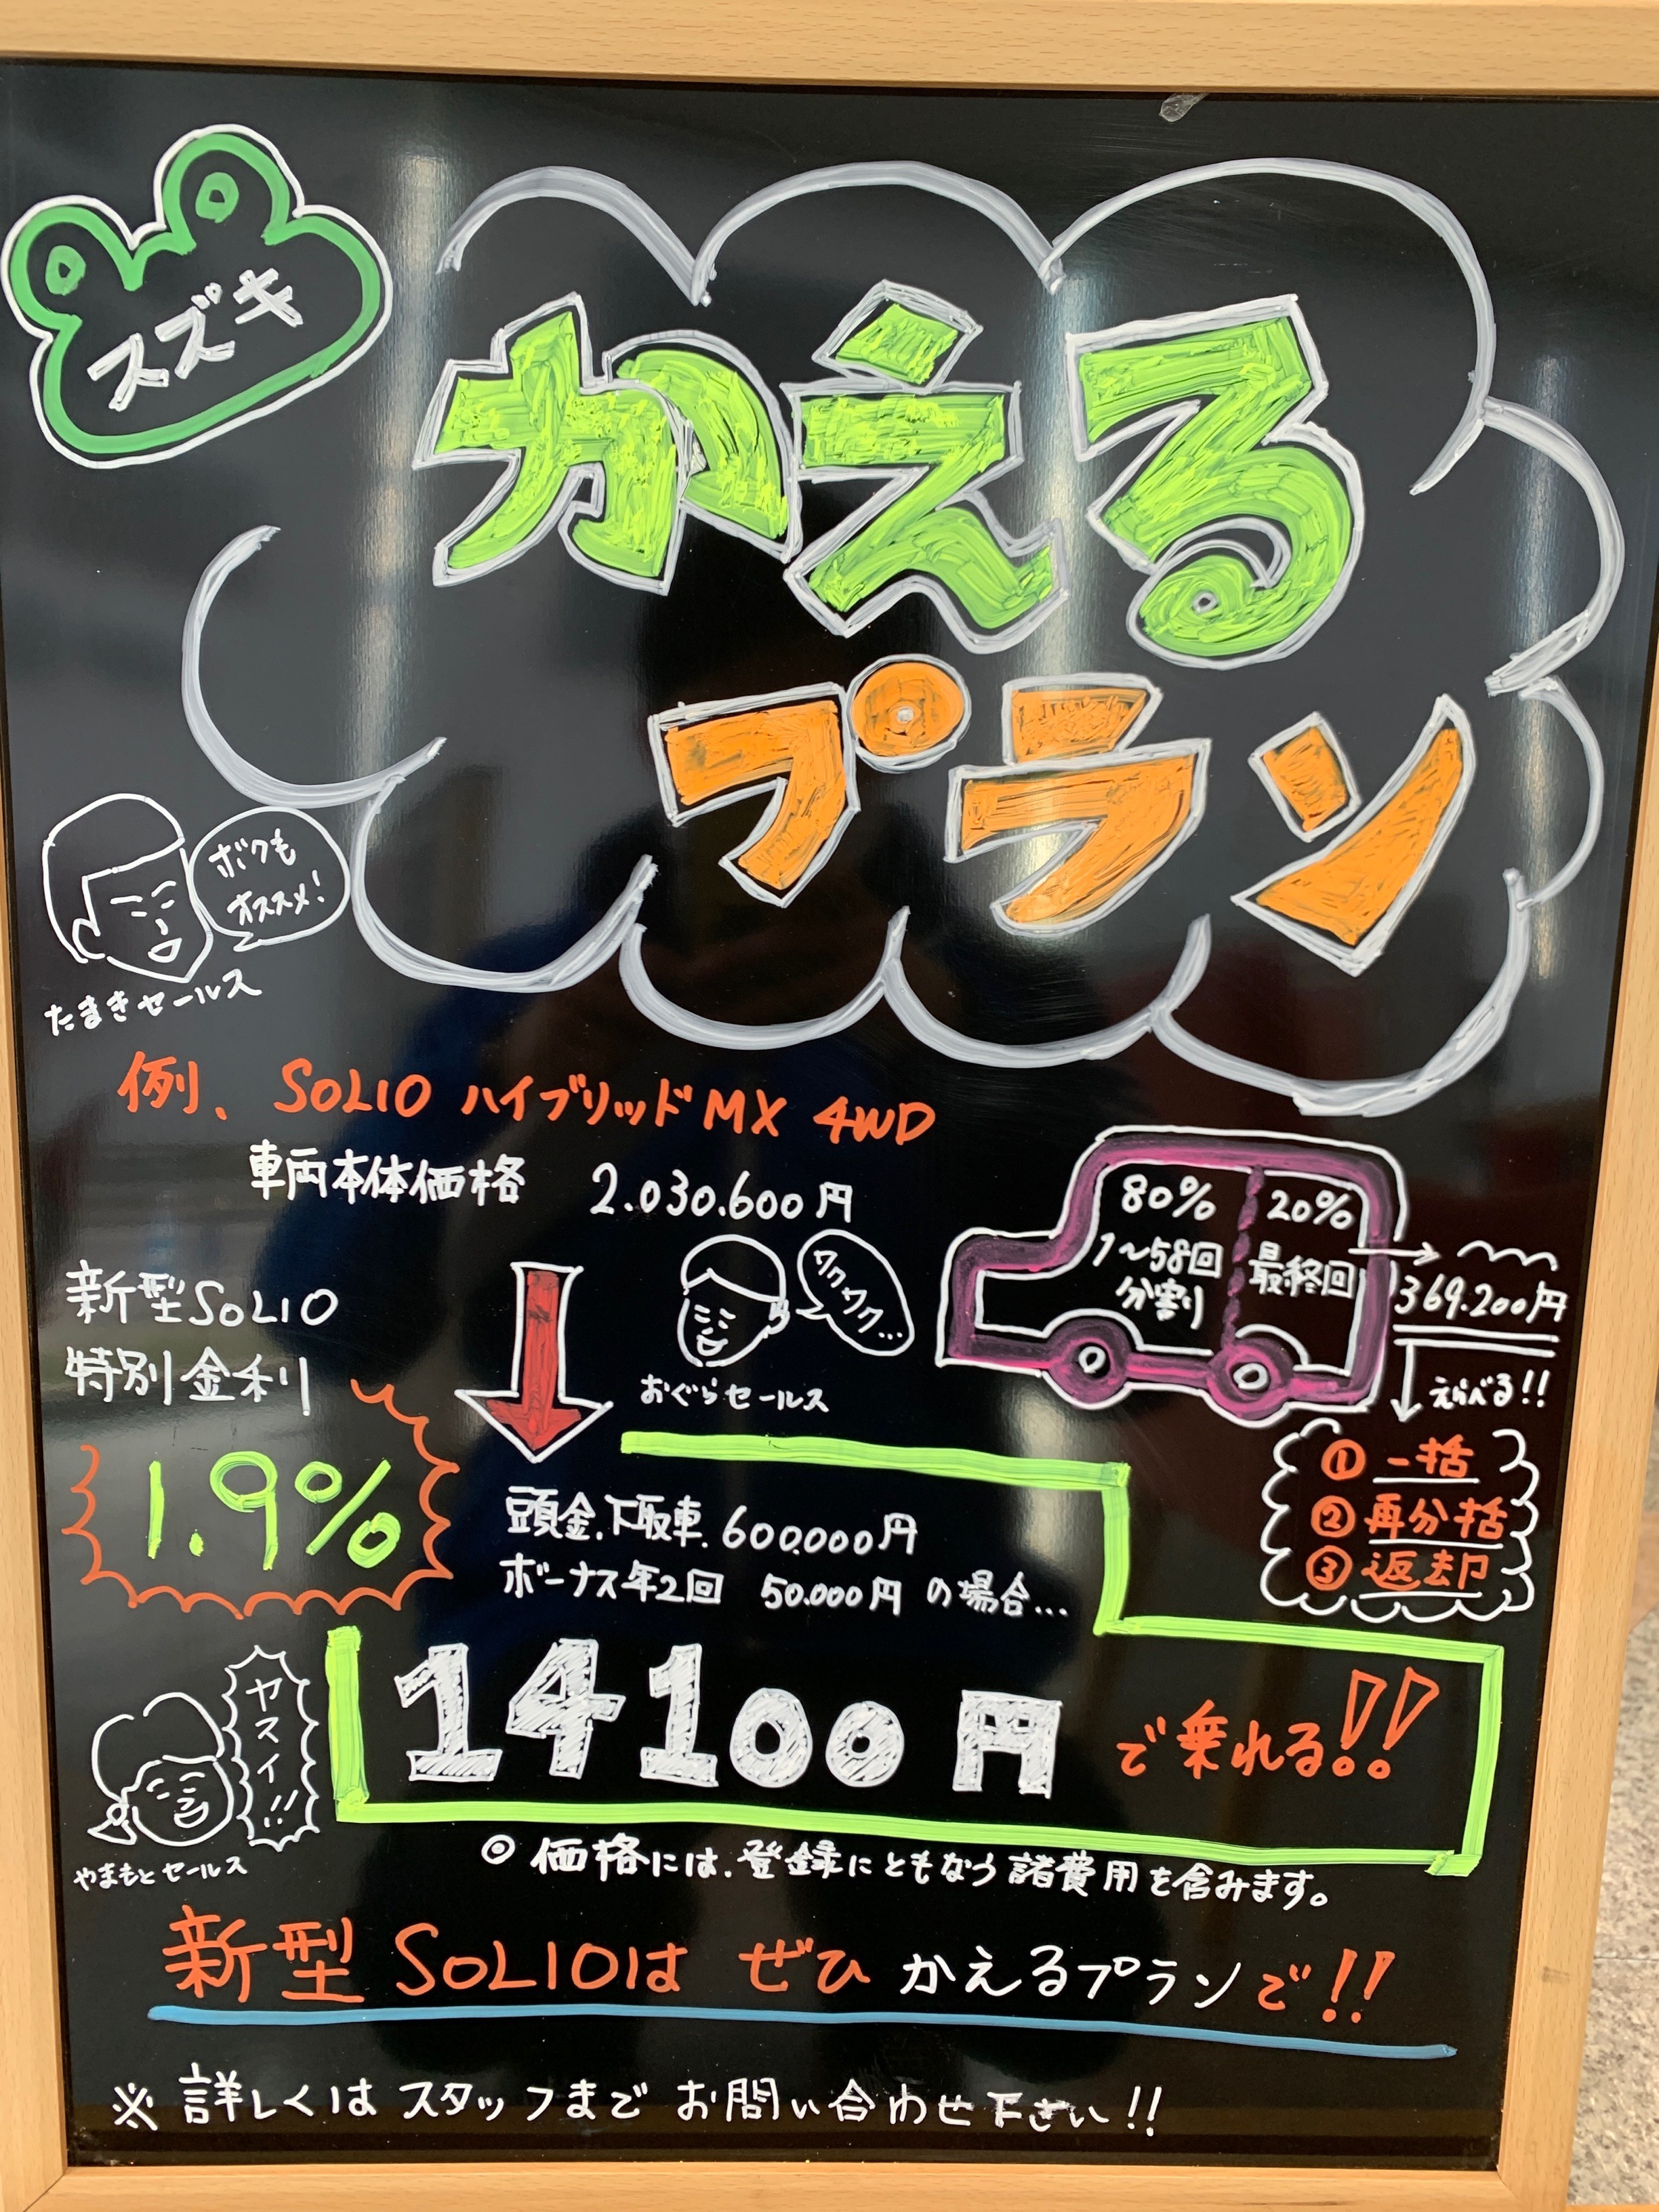 スズキ
かえる
プラン
ボクも
オススメ!
たまきセールス
例、SOLIO ハイブリッドMX 4WD
車両本体価格 2.030.600円
新型SOLIO
特別金利
1.9%
ワクワク…
おぐらセールス
80%
1~58回
分割
20%
最終回
369.200円
えらべる!!
① 一括
② 再分括
③ 返却
頭金.下取車.600.000円
ボーナス年2回 50.000円 の場合…
14100円 で乗れる!!
ヤスイ!!
やまもとセールス
◎ 価格には.登録にともなう諸費用を含みます。
新型 SOLIOは ぜひ かえるプランで!!
※ 詳しくは スタッフまで お問い合わせ下さい!!